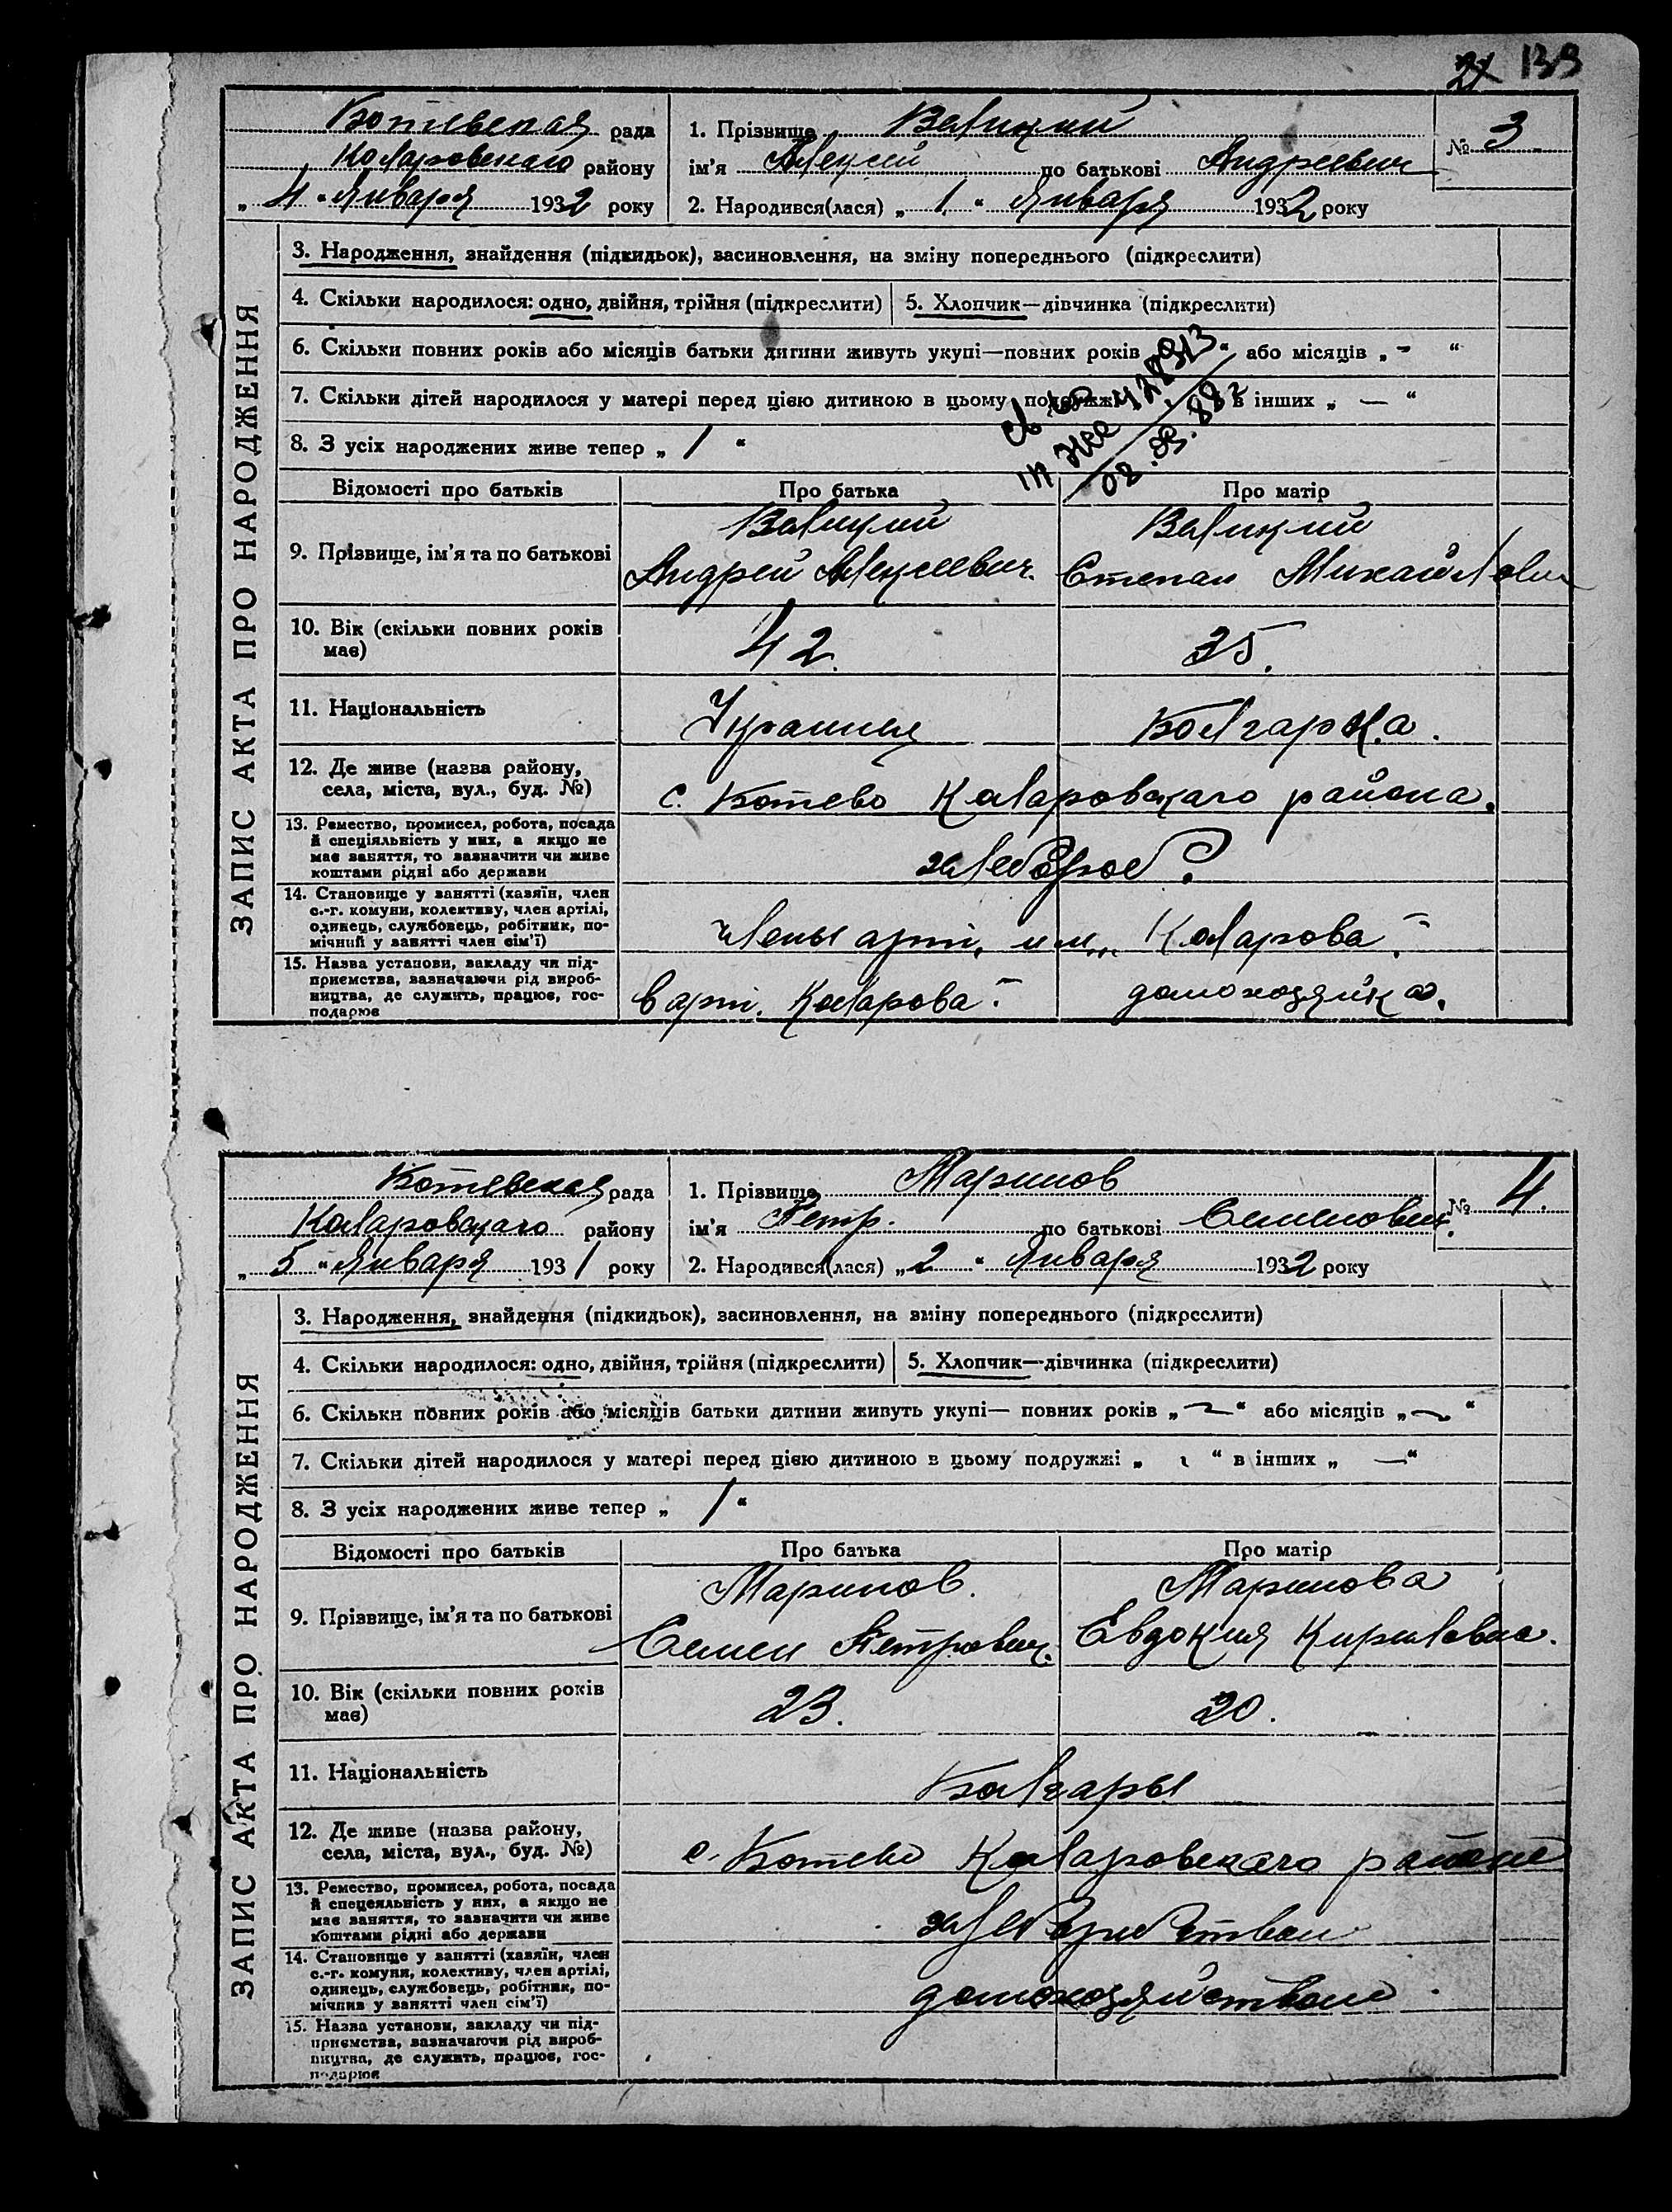 21 133
Ботевская рада
Коларовскаго району
„ 4 “ Января 1932 року
1. Прізвище Велицкий
ім’я Алексей по батькові Андреевич
№ 3
2. Народився(лася) „ 1 “ Января 1932 року
ЗАПИС АКТА ПРО НАРОДЖЕННЯ
3. Народження, знайдення (підкидьок), засиновлення, на зміну попереднього (підкреслити)
4. Скільки народилося: одно, двійня, трійня (підкреслити) 5. Хлопчик—дівчинка (підкреслити)
6. Скільки повних років або місяців батьки дитини живуть укупі—повних років “ або місяців „ - “
7. Скільки дітей народилося у матері перед цією дитиною в цьому подружжі в інших „ — “
8. З усіх народжених живе тепер „ 1 “
08.09.88г
Відомості про батьків Про батька Про матір
9. Прізвище, ім’я та по батькові Велицкий Андрей Алексеевич. Велицкий Степан Михайлович
10. Вік (скільки повних років має) 42. 35.
11. Національність Украинец Болгарка.
12. Де живе (назва району, села, міста, вул., буд. №) с. Ботево Коларовскаго района.
13. Ремество, промисел, робота, посада й спеціяльність у них, а якщо не має заняття, то зазначити чи живе коштами рідні або держави хлебороб.
14. Становище у занятті (хазяїн, член с.-г. комуни, колективу, член артілі, одинець, службовець, робітник, помічний у занятті член сім’ї) члены арт. им. Коларова
15. Назва установи, закладу чи підприємства, зазначаючи рід виробництва, де служить, працює, господарює в арт. Коларова домохозяйка.
Ботевская рада
Коларовскаго району
„ 5 “ Января 1931 року
1. Прізвище Маринов
ім’я Петр. по батькові Семенович.
№ 4.
2. Народився(лася) „ 2 “ Января 1932 року
ЗАПИС АКТА ПРО НАРОДЖЕННЯ
3. Народження, знайдення (підкидьок), засиновлення, на зміну попереднього (підкреслити)
4. Скільки народилося: одно, двійня, трійня (підкреслити) 5. Хлопчик—дівчинка (підкреслити)
6. Скільки повних років або місяців батьки дитини живуть укупі— повних років „ “ або місяців „ “
7. Скільки дітей народилося у матері перед цією дитиною в цьому подружжі „ 1 “ в інших „ — “
8. З усіх народжених живе тепер „ 1 “
Відомості про батьків Про батька Про матір
9. Прізвище, ім’я та по батькові Маринов. Семен Петрович. Маринова Евдокия Кириловна.
10. Вік (скільки повних років має) 23. 20.
11. Національність Болгары
12. Де живе (назва району, села, міста, вул., буд. №) с. Ботево Коларовскаго района
13. Ремество, промисел, робота, посада й спецеяльність у них, а якщо не має заняття, то зазначити чи живе коштами рідні або держави хлеборобством
14. Становище у занятті (хазяїн, член с.-г. комуни, колективу, член артілі, одинець, службовець, робітник, помічнив у занятті член сім’ї) домохозяйством
15. Назва установи, закладу чи підприємства, зазначаючи рід виробництва, де служить, працює, господарює